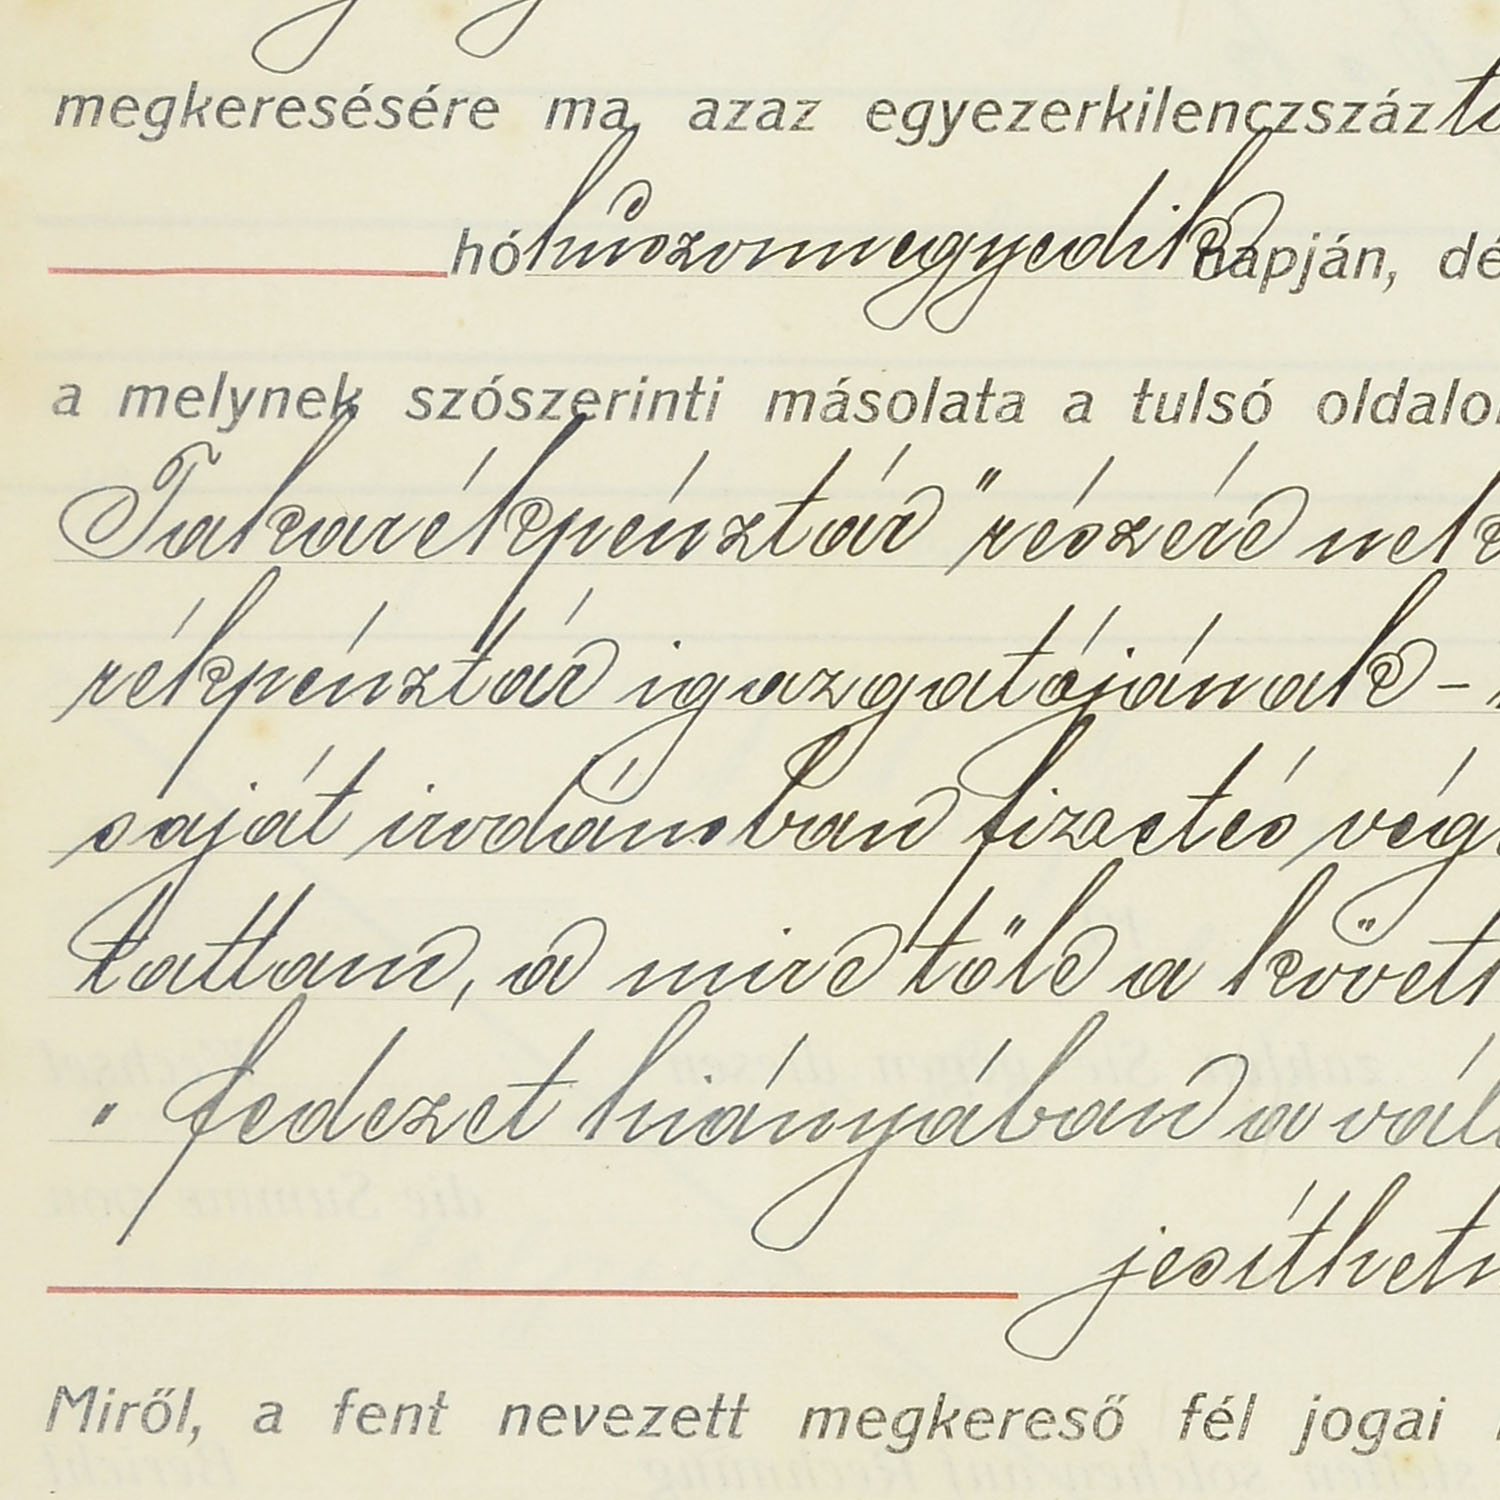 megkeresésére ma, azaz egyezerkilenczszáz
hó huszonnegyedik napján, dé
a melynek szószerinti másolata a tulsó oldalon
Takarékpénztár" részére nek
rékpénztár igazgatójának –
saját irodámban fizetés vég
tattam, a mire tőle a követk
" fedezet hiányában a vál
jesíthetn
Miről, a fent nevezett megkereső fél jogai